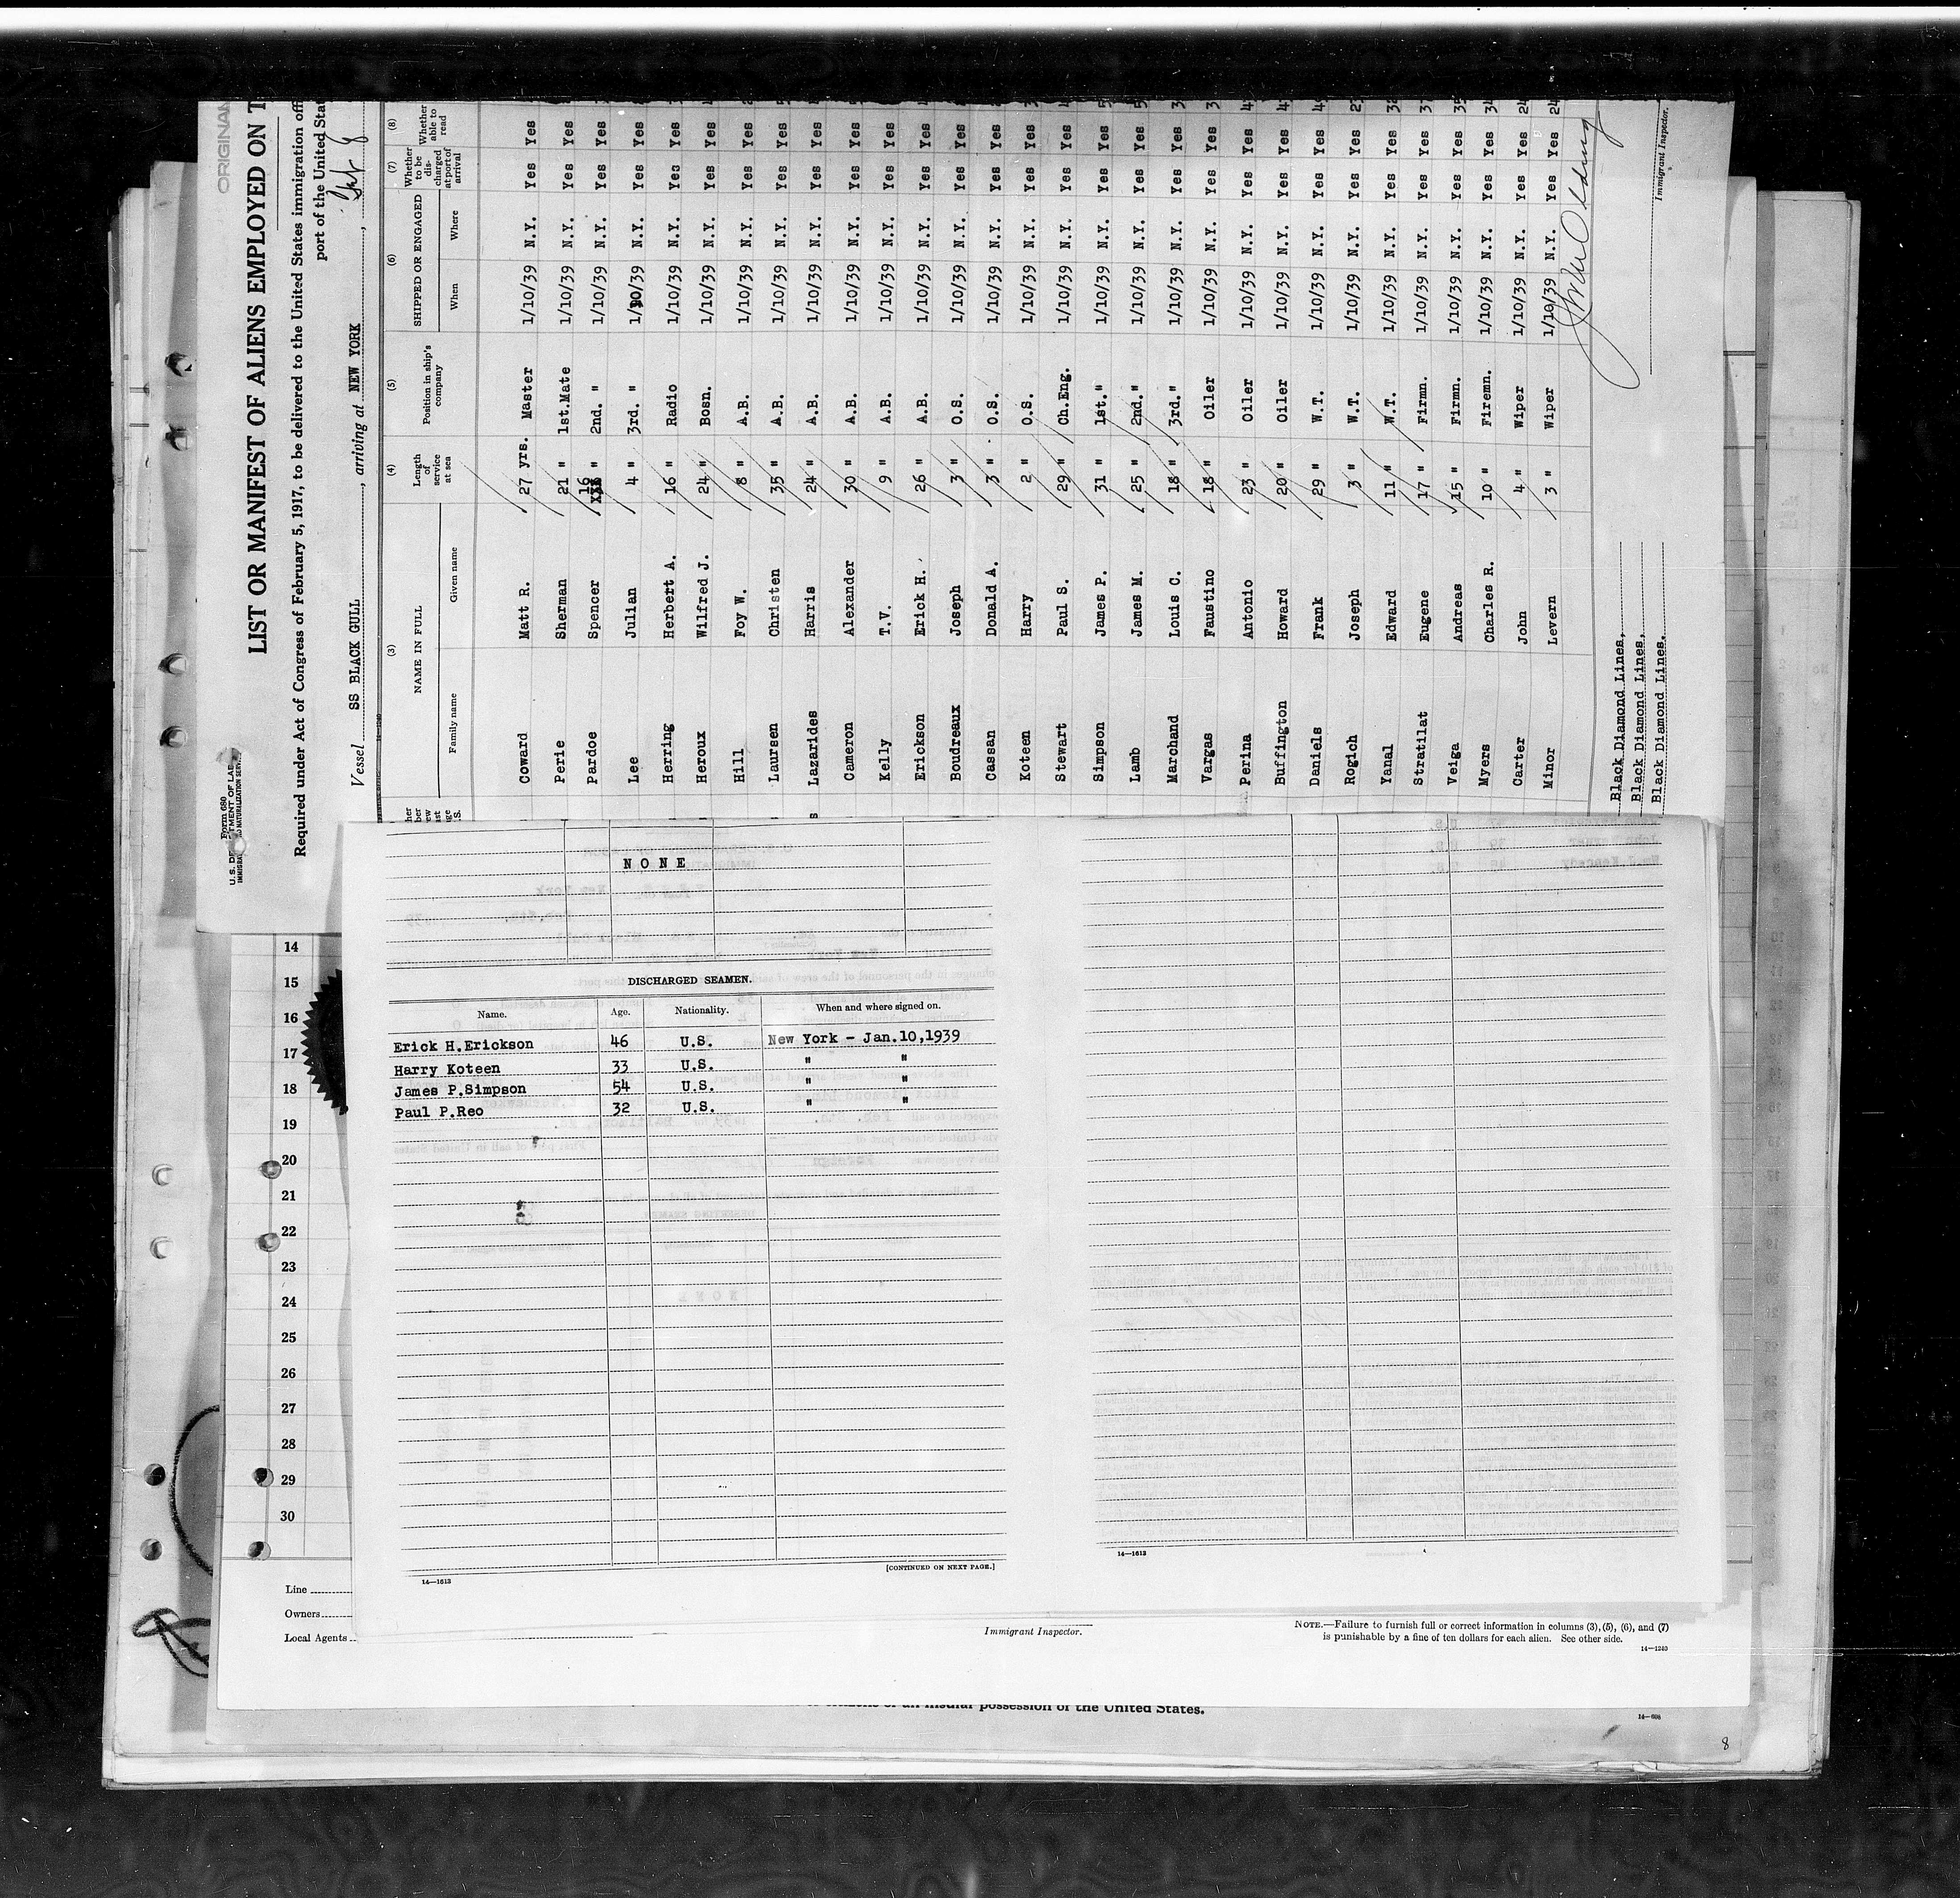 ORIGINAL
Form 680
U. S. DEPARTMENT OF LABOR
LIST OR MANIFEST OF ALIENS EMPLOYED ON T
Required under Act of Congress of February 5, 1917, to be delivered to the United States immigration offi
port of the United Stat
Vessel SS BLACK GULL, arriving at NEW YORK,
(3) (4) (5) (6) (7) (8)
NAME IN FULL Length of service at sea Position in ship's company SHIPPED OR ENGAGED Whether to be discharged at port of arrival Whether able to read
Family name Given name When Where
Coward Matt R. 27 yrs. Master 1/10/39 N.Y. Yes Yes
Perie Sherman 21 " 1st.Mate 1/10/39 N.Y. Yes Yes
Pardoe Spencer 16 " 2nd. " 1/10/39 N.Y. Yes Yes
Lee Julian 4 " 3rd. " 1/10/39 N.Y. Yes Yes
Herring Herbert A. 16 " Radio 1/10/39 N.Y. Yes Yes
Heroux Wilfred J. 24 " Bosn. 1/10/39 N.Y. Yes Yes
Hill Foy W. 8 " A.B. 1/10/39 N.Y. Yes Yes
Laursen Christen 35 " A.B. 1/10/39 N.Y. Yes Yes
Lazarides Harris 24 " A.B. 1/10/39 N.Y. Yes Yes
Cameron Alexander 30 " A.B. 1/10/39 N.Y. Yes Yes
Kelly T.V. 9 " A.B. 1/10/39 N.Y. Yes Yes
Erickson Erick H. 26 " A.B. 1/10/39 N.Y. Yes Yes
Boudreaux Joseph 3 " O.S. 1/10/39 N.Y. Yes Yes
Cassan Donald A. 3 " O.S. 1/10/39 N.Y. Yes Yes
Koteen Harry 2 " O.S. 1/10/39 N.Y. Yes Yes
Stewart Paul S. 29 " Ch.Eng. 1/10/39 N.Y. Yes Yes
Simpson James P. 31 " 1st. " 1/10/39 N.Y. Yes Yes
Lamb James M. 25 " 2nd. " 1/10/39 N.Y. Yes Yes
Marchand Louis C. 18 " 3rd. " 1/10/39 N.Y. Yes Yes
Vargas Faustino 18 " Oiler 1/10/39 N.Y. Yes Yes
Perina Antonio 23 " Oiler 1/10/39 N.Y. Yes Yes
Buffington Howard 20 " Oiler 1/10/39 N.Y. Yes Yes
Daniels Frank 29 " W.T. 1/10/39 N.Y. Yes Yes
Rogich Joseph 3 " W.T. 1/10/39 N.Y. Yes Yes
Yanal Edward 11 " W.T. 1/10/39 N.Y. Yes Yes
Stratilat Eugene 17 " Firmn. 1/10/39 N.Y. Yes Yes
Veiga Andreas 15 " Firmn. 1/10/39 N.Y. Yes Yes
Myers Charles R. 10 " Firemn. 1/10/39 N.Y. Yes Yes
Carter John 4 " Wiper 1/10/39 N.Y. Yes Yes
Minor Levern 3 " Wiper 1/10/39 N.Y. Yes Yes
Black Diamond Lines,
Black Diamond Lines,
Black Diamond Lines.
Immigrant Inspector.
NONE
DISCHARGED SEAMEN.
Name. Age. Nationality. When and where signed on.
Erick H.Erickson 46 U.S. New York - Jan.10,1939
Harry Koteen 33 U.S. " "
James P.Simpson 54 U.S. " "
Paul P.Reo 32 U.S. " "
[CONTINUED ON NEXT PAGE.]
14—1613
14—1613
14
15
16
17
18
19
20
21
22
23
24
25
26
27
28
29
30
Line
Owners
Local Agents
Immigrant Inspector.
NOTE.—Failure to furnish full or correct information in columns (3), (5), (6), and (7)
is punishable by a fine of ten dollars for each alien. See other side.
14—1240
an insular possession of the United States.
8